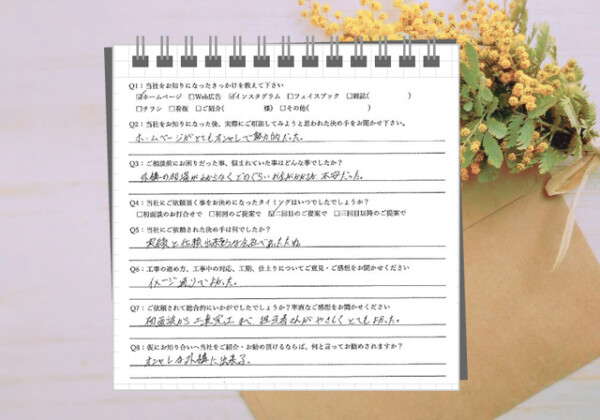 Q1：当社をお知りになったきっかけを教えて下さい
☑ホームページ □Web広告 ☑インスタグラム □フェイスブック □雑誌( )
□チラシ □看板 □ご紹介( 様) □その他( )
Q2：当社をお知りになった後、実際にご相談してみようと思われた決め手をお聞かせ下さい。
ホームページがとてもオシャレで魅力的だった。
Q3：ご相談前にお困りだった事、悩まれていた事はどんな事でしたか？
外構の相場がわからなくどのぐらいお金がかかるか不安だった。
Q4：当社にご依頼頂く事をお決めになったタイミングはいつでしたでしょうか？
□初面談のお打合せで □初回のご提案で ☑二回目のご提案で □三回目以降のご提案で
Q5：当社にご依頼された決め手は何でしたか？
実績と信頼出来る会社であったため
Q6：工事の進め方、工事中の対応、工期、仕上りについてご意見・ご感想をお聞かせください
イメージ通りでよかった。
Q7：ご依頼されて総合的にいかがでしたでしょうか？率直なご感想をお聞かせください
初面談から工事完工まで、担当者さんがやさしくとてもよかった。
Q8：仮にお知り合いへ当社をご紹介・お勧め頂けるならば、何と言ってお勧めされますか？
オシャレな外構に出来る。